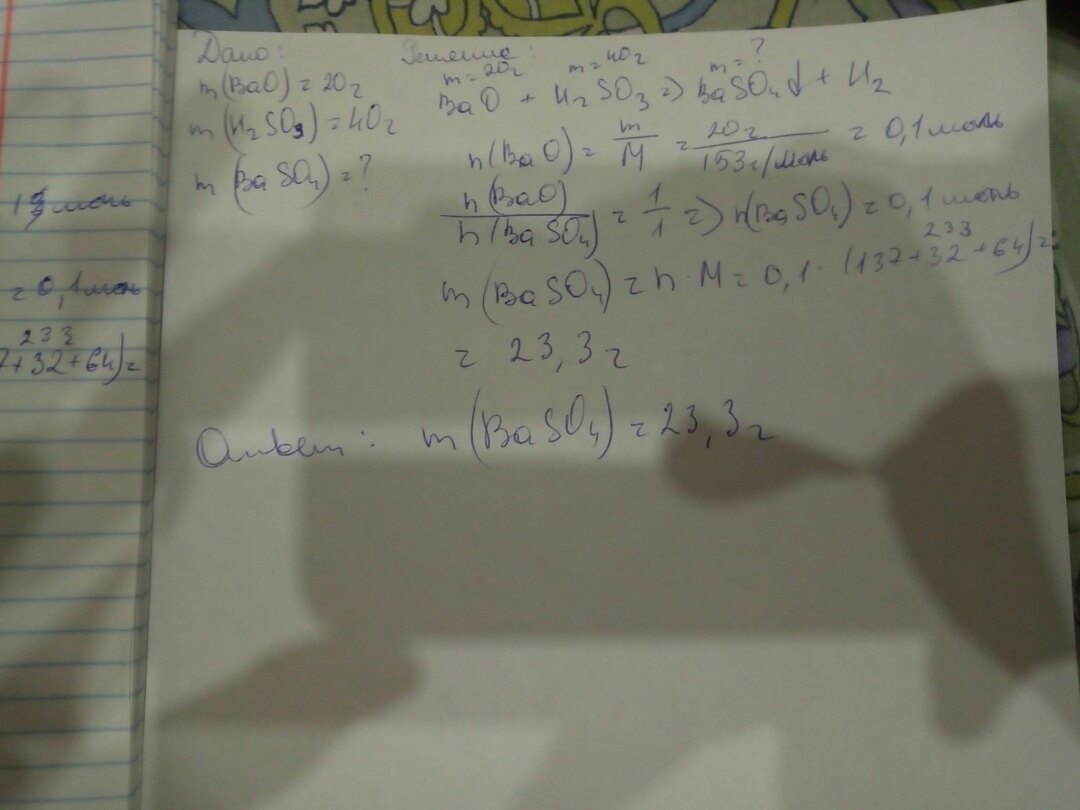 19 моль
= 0,1 моль
233
7+32+64)=
Дано:
m(BaO) = 20г
m(H₂SO₃) = 40г
m(BaSO₄) = ?
Решение:
m = 20г m = 40г m = ?
BaO + H₂SO₃ => BaSO₄↓ + H₂
n(BaO) = m/M = 20г/153г/моль = 0,1 моль
n(BaO)/n(BaSO₄) = 1/1 => n(BaSO₄) = 0,1 моль
233
m(BaSO₄) = n · M = 0,1 · (137+32+64) =
= 23,3г
Ответ: m(BaSO₄) = 23,3г